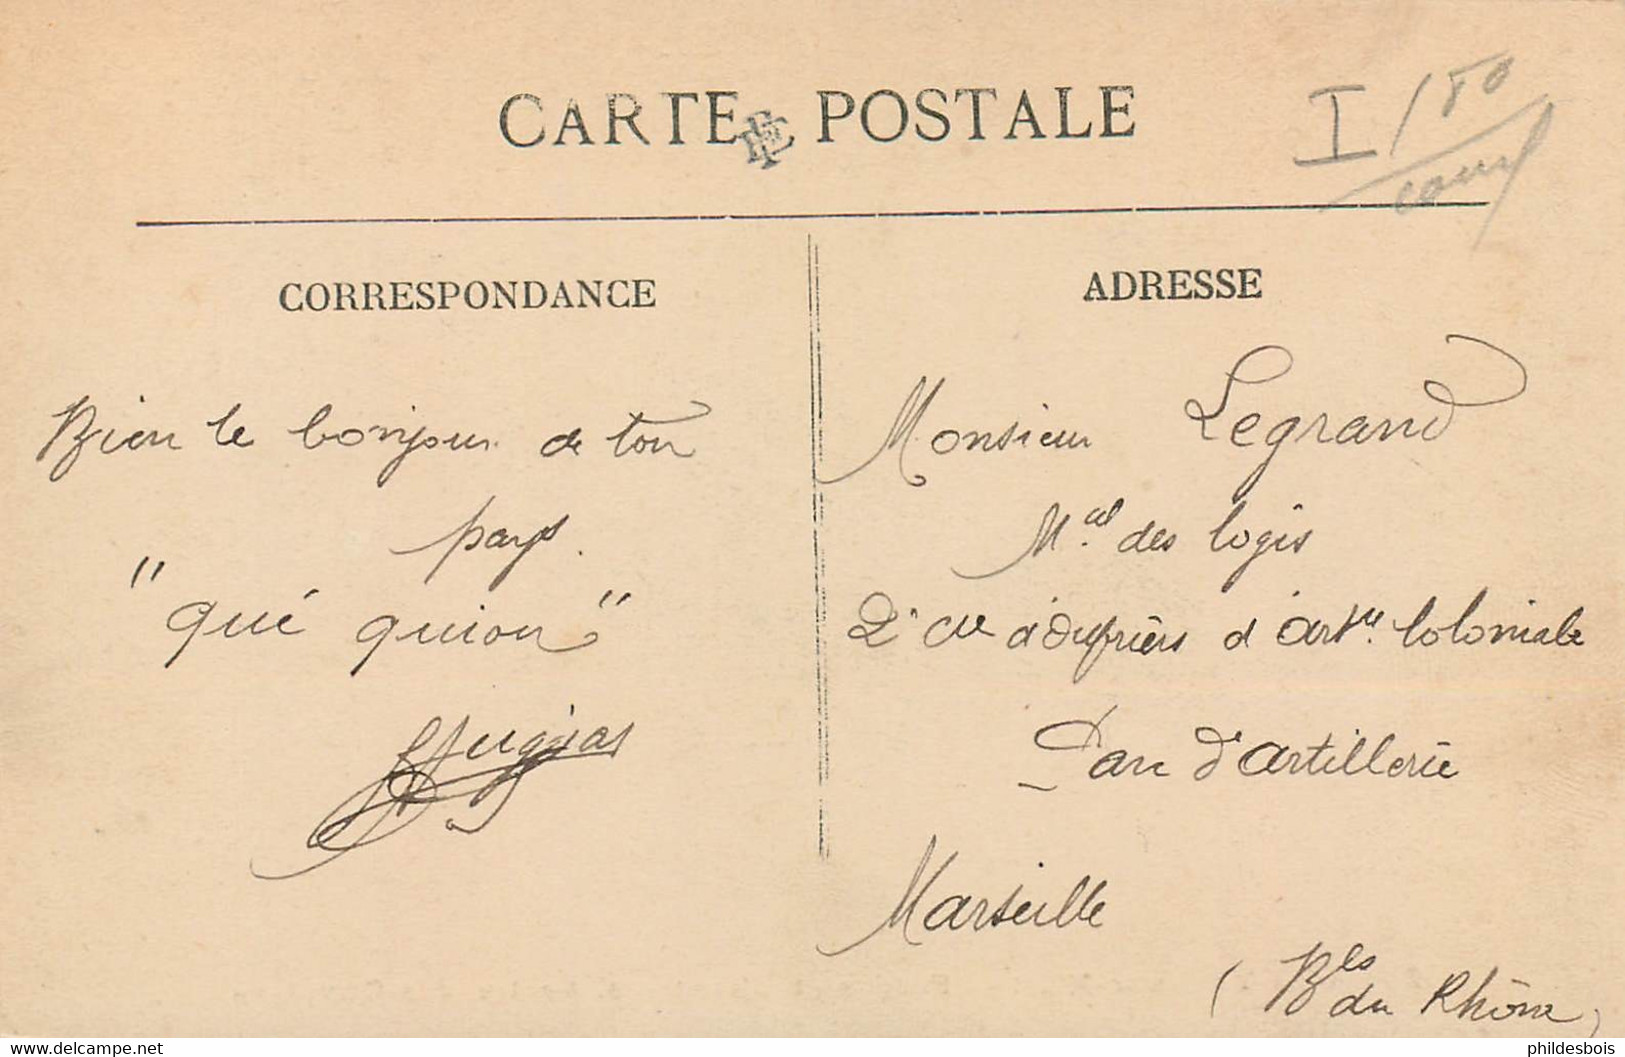 CARTE POSTALE
I / 80
CORRESPONDANCE
Bien le bonjour de ton
pays.
"qué quion"
ADRESSE
Monsieur Legrand
Mal des logis
2e Cie d'Ouvriers d'Artie Coloniale
Parc d'artillerie
Marseille
(Bles du Rhône)
delcampe.net
phildesbois